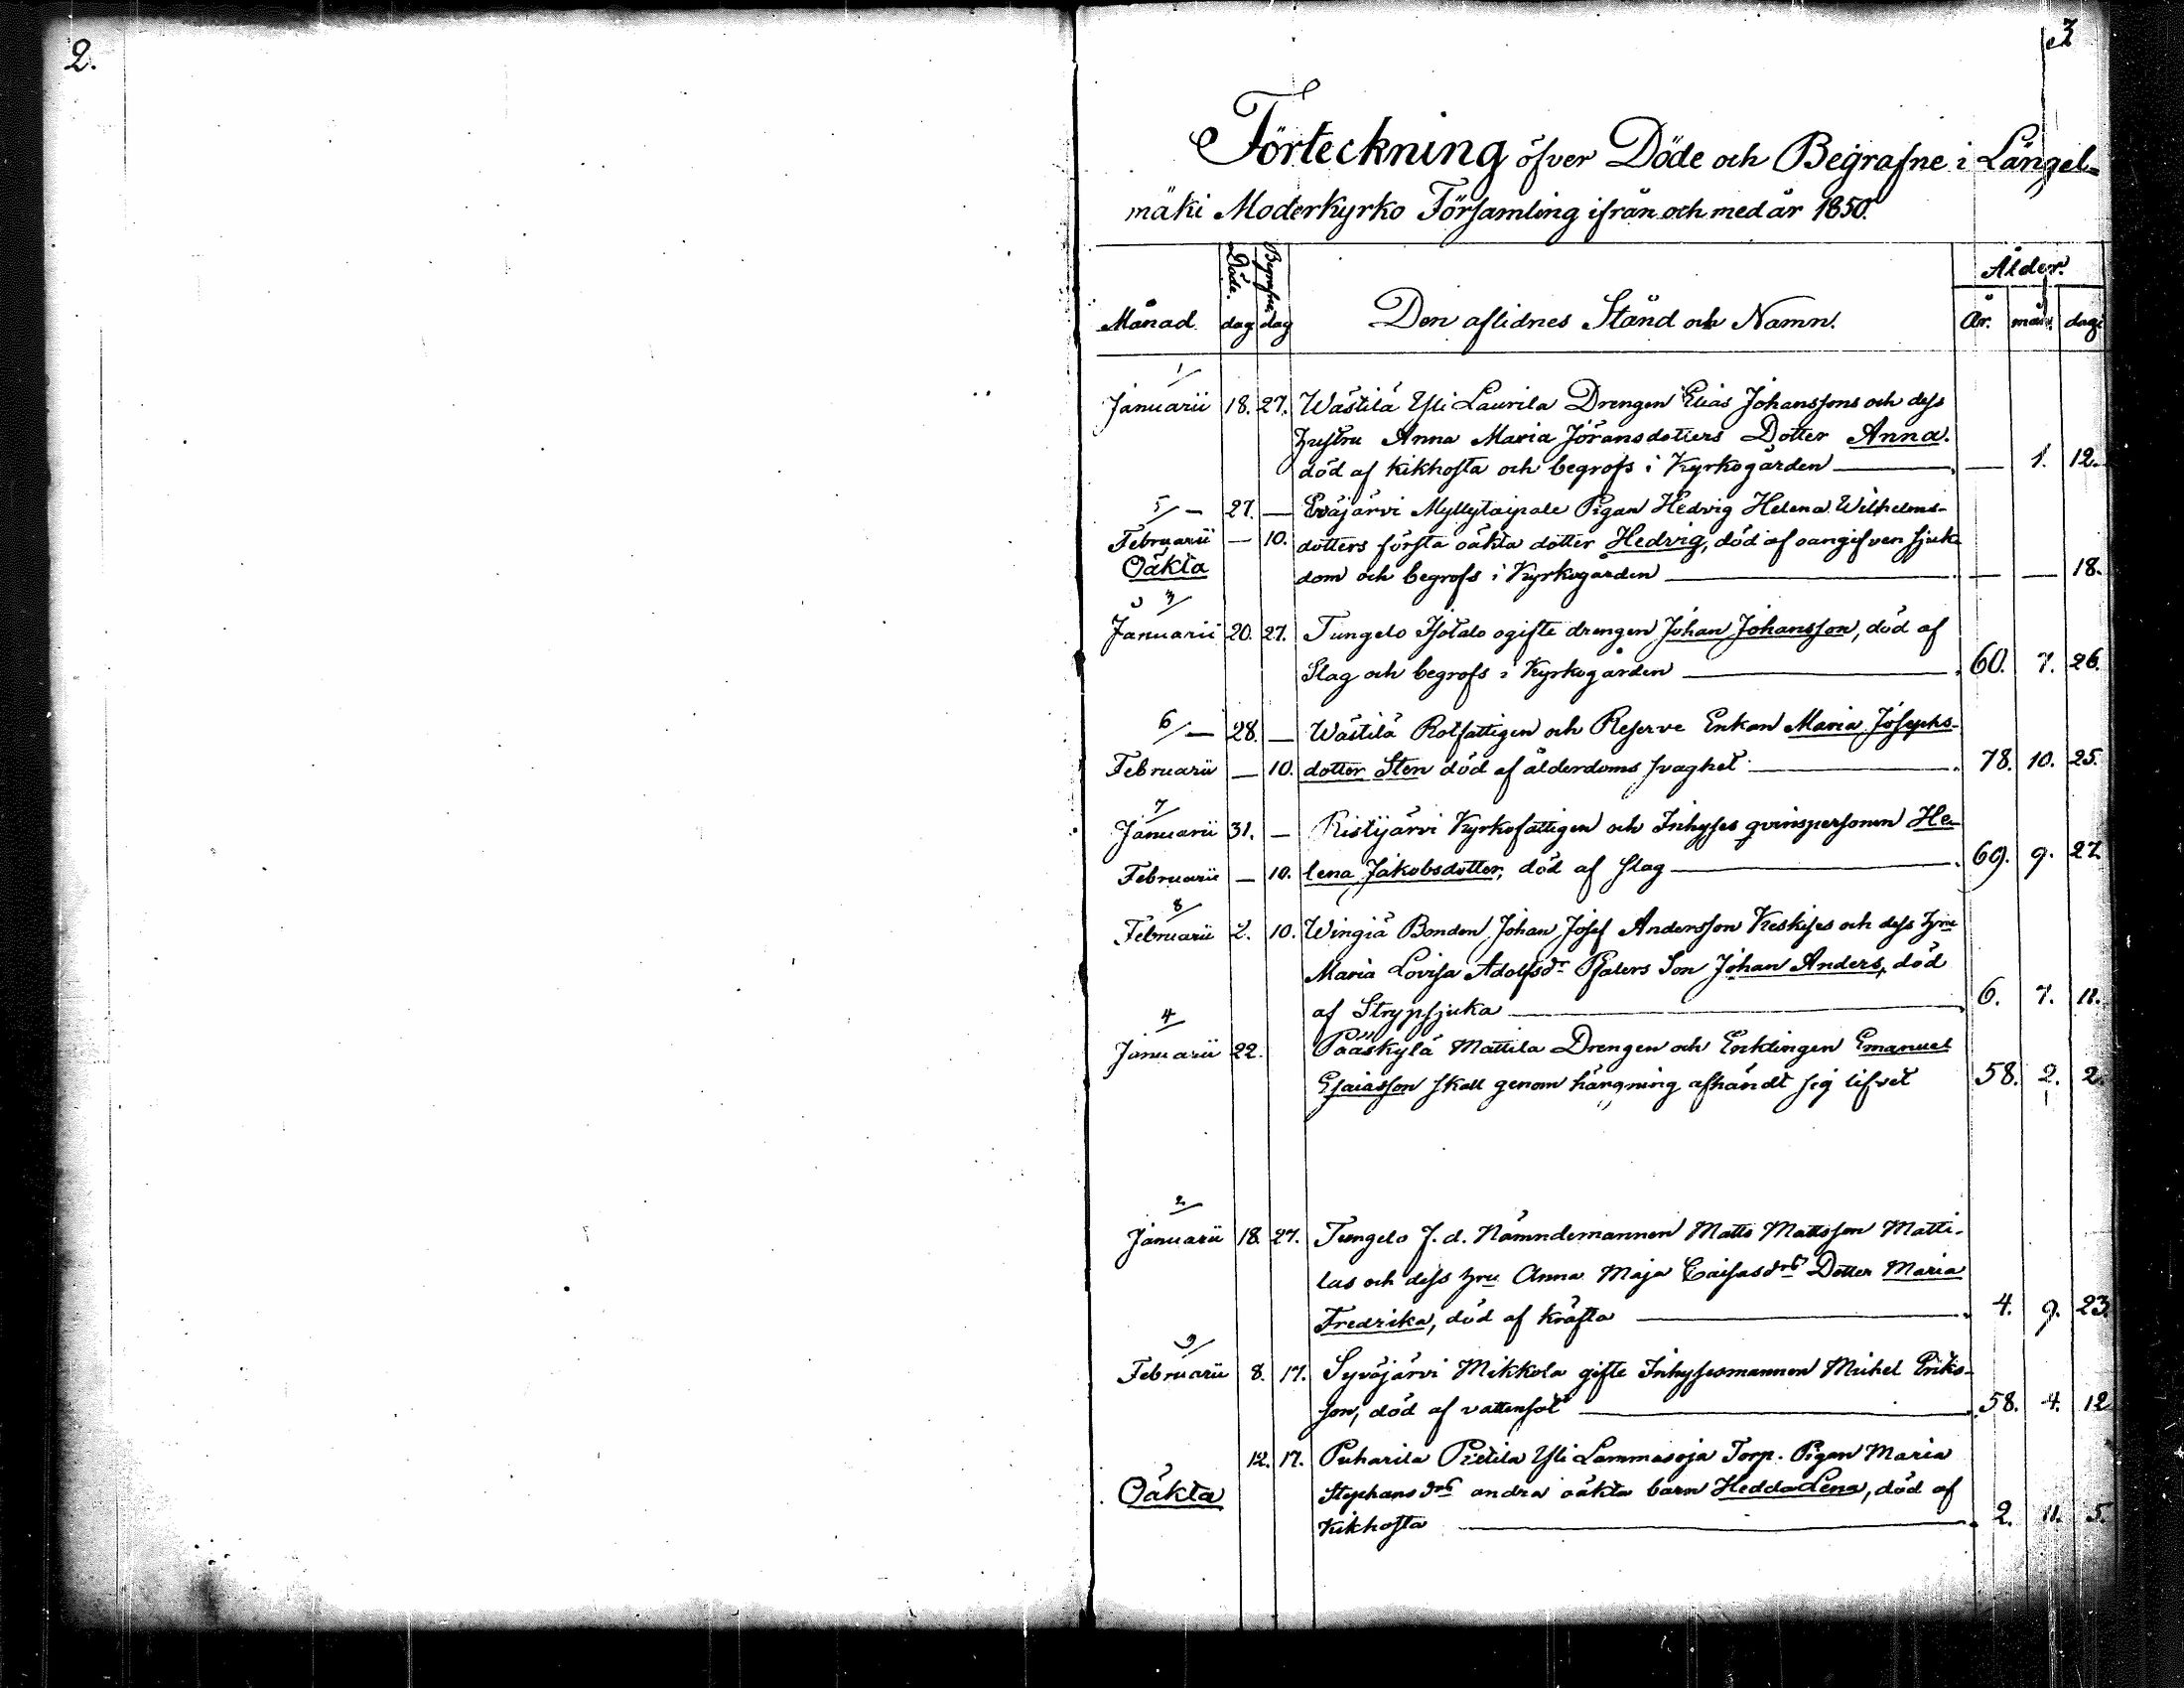 2.
3
Förteckning öfver Döde och Begrafne i Längel=
mäki Moderkyrko Församling ifrån och med år 1850.
Månad. Döde. dag Begrafne dag Den aflidnes Stånd och Namn. Ålder. År. mån. dag.
1/
Januarii 18. 27. Wästilä Yli Laurila Drengen Elias Johanssons och dess
hustru Anna Maria Jöransdotters Dotter Anna.
död af kikhosta och begrofs i Kyrkogården — — 1. 12.
5/ — 27. — Eväjärvi Myllytaipale Pigan Hedvig Helena Wilhelms-
Februarii — 10. dotters första oäkta dotter Hedvig, död af oangifven sjuk
Oäkta dom och begrofs i Kyrkogården — — — 18.
3/
Januarii 20. 27. Tungelo Isotalo ogifte drengen Johan Johansson, död af
Slag och begrofs i Kyrkogården — 60. 7. 26.
6/ — 28. — Wästilä Rotfattigen och Reserve Enkan Maria Josephs-
Februarii — 10. dotter Sten död af ålderdoms svaghet — 78. 10. 25.
7/
Januarii 31. — Ristijärvi Kyrkofattigen och Inhyses qvinspersonen He-
Februarii — 10. lena Jakobsdotter, död af slag — 69. 9. 27.
8/
Februarii 2. 10. Wingiä Bonden Johan Josef Andersson Keskises och dess hru
Maria Lovisa Adolfsdr Psalers Son Johan Anders, död
af Strypsjuka — 6. 7. 11.
4/
Januarii 22. Pääskylä Mattila Drengen och Enklingen Emanuel
Esaiasson skall genom hängning afhändt sig lifvet 58. 2. 2.
2/
Januarii 18. 27. Tungelo f.d. Nämndemannen Matts Mattsson Matti-
las och dess hru Anna Maja Caisasdrs Dotter Maria
Fredrika, död af kräfta — 4. 9. 23.
9/
Februarii 8. 17. Syväjärvi Mikkola gifte Inhysesmannen Mickel Eriks-
son, död af vattensot — 58. 4. 12
12. 17. Puharila Pietila Yli Lammasoja Torp. Pigan Maria
Oäkta Stephansdrs andra oäkta barn Hedda Lena, död af
Kikhosta — 2. 11. 5.